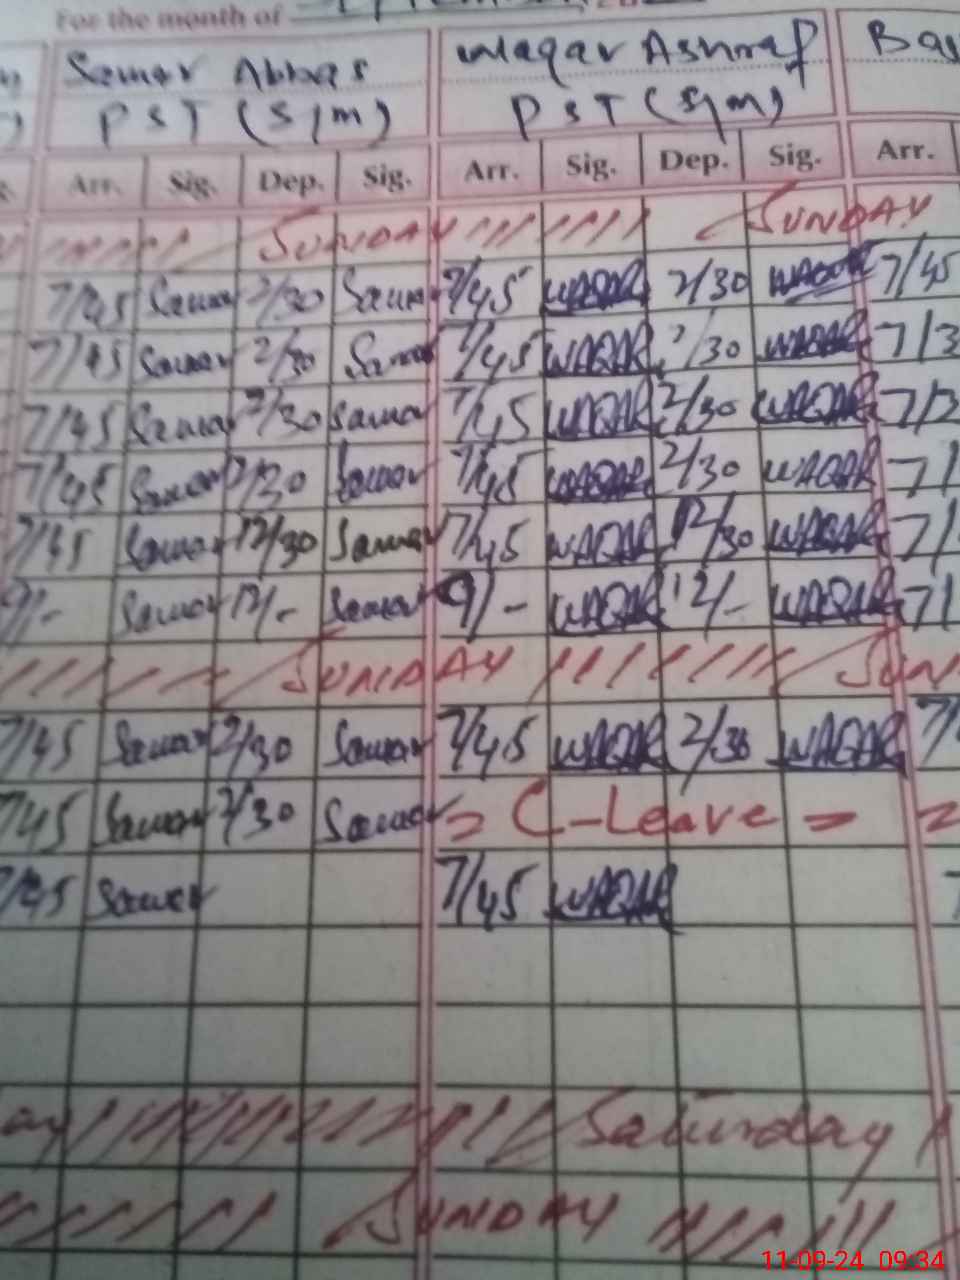 For the month of
Samar Abbas Waqar Ashraf
PST (S/m) PST (S/m)
Arr. Sig. Dep. Sig. Arr. Sig. Dep. Sig. Arr.
SUNDAY SUNDAY
7/45 Samar 2/30 Samar 7/45 WAQAR 2/30 WAQAR 7/45
7/45 Samar 2/30 Samar 7/45 WAQAR 2/30 WAQAR
7/45 Samar 2/30 Samar 7/45 WAQAR 2/30 WAQAR
7/45 Samar 2/30 Samar 7/45 WAQAR 2/30 WAQAR
7/45 Samar 12/30 Samar 7/45 WAQAR 12/30 WAQAR
9/- Samar 12/- Samar 9/- WAQAR 12/- WAQAR
SUNDAY
7/45 Samar 2/30 Samar 7/45 WAQAR 2/30 WAQAR
7/45 Samar 2/30 Samar = C-Leave =
7/45 Samar 7/45 WAQAR
Saturday
SUNDAY
11-09-24 09:34